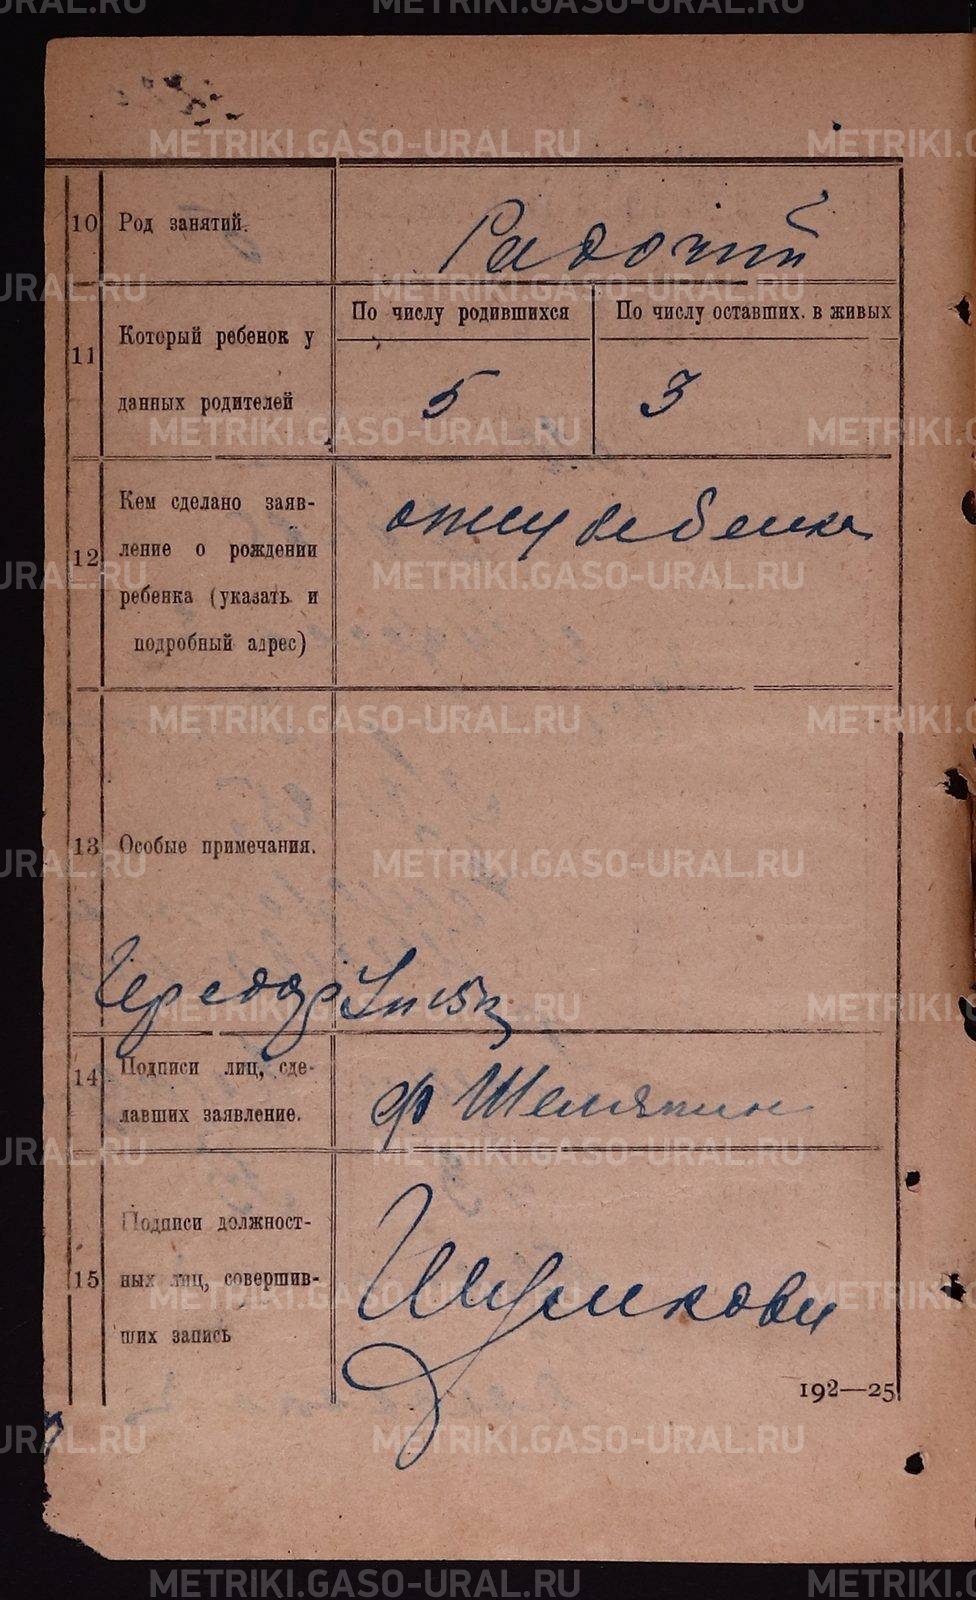 METRIKI.GASO-URAL.RU
10 Род занятий. Рабочий
11 Который ребенок у данных родителей
По числу родившихся
По числу оставших. в живых
5
3
12 Кем сделано заяв-
ление о рождении
ребенка (указать и
подробный адрес)
отец ребенка
13 Особые примечания.
14 Подписи лиц, сде-
лавших заявление.
15 Подписи должност-
ных лиц, совершив-
ших запись
192—25